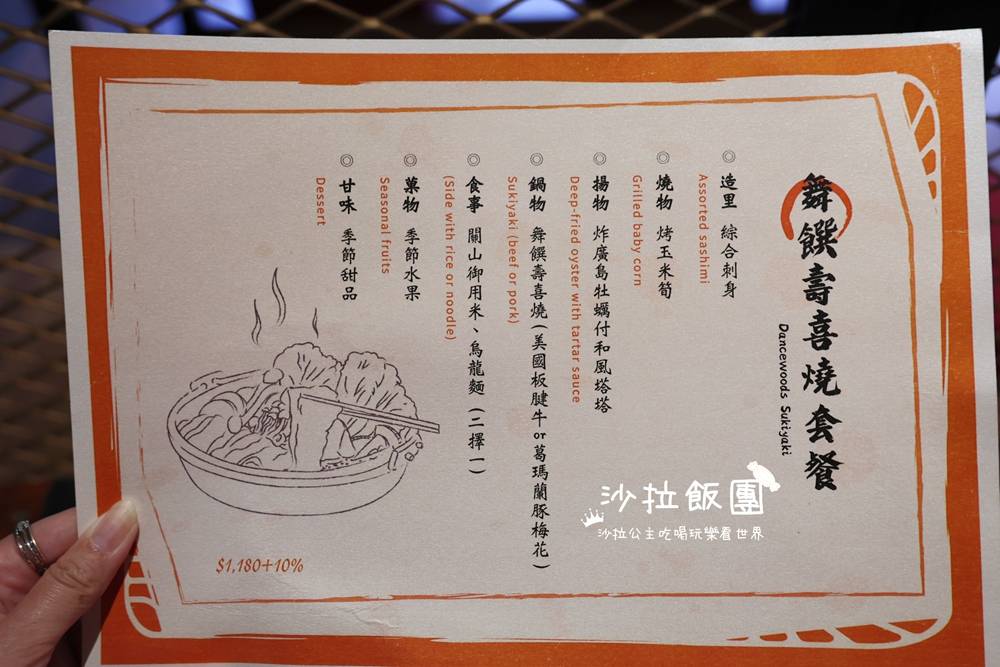 舞饌壽喜燒套餐
Dancewoods Sukiyaki
◎ 造里 綜合刺身
Assorted sashimi
◎ 燒物 烤玉米筍
Grilled baby corn
◎ 揚物 炸廣島牡蠣付和風塔塔
Deep-fried oyster with tartar sauce
◎ 鍋物 舞饌壽喜燒(美國板腱牛or葛瑪蘭豚梅花)
Sukiyaki (beef or pork)
◎ 食事 關山御用米、烏龍麵 (二擇一)
(Side with rice or noodle)
◎ 菓物 季節水果
Seasonal fruits
◎ 甘味 季節甜品
Dessert
$1,180+10%
沙拉飯團
沙拉公主吃喝玩樂看世界